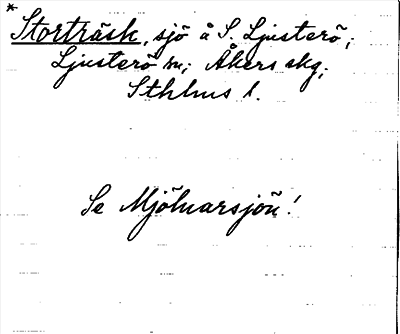 * Storträsk, sjö å S. Ljusterö;
Ljusterö sn; Åkers skg;
Sthlms l.
Se Mjölnarsjön!